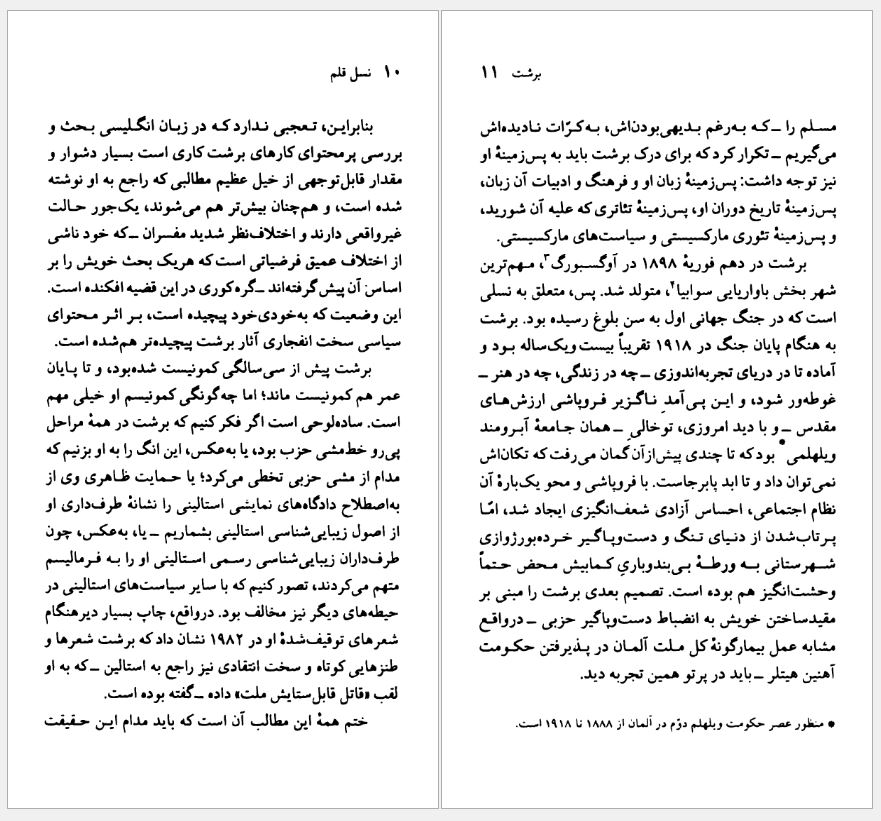 ۱۰ نسل قلم
بنابراین، تعجبی ندارد که در زبان انگلیسی بحث و
بررسی پرمحتوای کارهای برشت کاری است بسیار دشوار و
مقدار قابل‌توجهی از خیل عظیم مطالبی که راجع به او نوشته
شده است، و هم‌چنان بیش‌تر هم می‌شوند، یک‌جور حالت
غیرواقعی دارند و اختلاف‌نظر شدید مفسران ــ که خود ناشی
از اختلاف عمیق فرضیاتی است که هریک بحث خویش را بر
اساس آن پیش گرفته‌اند ــ گره کوری در این قضیه افکنده است.
این وضعیت که به‌خودی‌خود پیچیده است، بر اثر محتوای
سیاسی سخت انفجاری آثار برشت پیچیده‌تر هم‌شده است.
برشت پیش از سی‌سالگی کمونیست شده‌بود، و تا پایان
عمر هم کمونیست ماند؛ اما چه‌گونگی کمونیسم او خیلی مهم
است. ساده‌لوحی است اگر فکر کنیم که برشت در همهٔ مراحل
پی‌رو خط‌مشی حزب بود، یا به‌عکس، این انگ را به او بزنیم که
مدام از مشی حزبی تخطی می‌کرد؛ یا حمایت ظاهری وی از
به‌اصطلاح دادگاه‌های نمایشی استالینی را نشانهٔ طرف‌داری او
از اصول زیبایی‌شناسی استالینی بشماریم ــ یا، به‌عکس، چون
طرف‌داران زیبایی‌شناسی رسمی استالینی او را به فرمالیسم
متهم می‌کردند، تصور کنیم که با سایر سیاست‌های استالینی در
حیطه‌های دیگر نیز مخالف بود. درواقع، چاپ بسیار دیرهنگام
شعرهای توقیف‌شدهٔ او در ۱۹۸۲ نشان داد که برشت شعرها و
طنزهایی کوتاه و سخت انتقادی نیز راجع به استالین ــ که به او
لقب «قاتل قابل‌ستایش ملت» داده ــ گفته بوده است.
ختم همهٔ این مطالب آن است که باید مدام این حقیقت
برشت ۱۱
مسلم را ــ که به‌رغم بدیهی‌بودن‌اش، به‌کرّات نادیده‌اش
می‌گیریم ــ تکرار کرد که برای درک برشت باید به پس‌زمینهٔ او
نیز توجه داشت: پس‌زمینهٔ زبان او و فرهنگ و ادبیات آن زبان،
پس‌زمینهٔ تاریخ دوران او، پس‌زمینهٔ تئاتری که علیه آن شورید،
و پس‌زمینهٔ تئوری مارکسیستی و سیاست‌های مارکسیستی.
برشت در دهم فوریهٔ ۱۸۹۸ در آوگسبورگ۳، مهم‌ترین
شهر بخش باواریایی سوابیا۴، متولد شد. پس، متعلق به نسلی
است که در جنگ جهانی اول به سن بلوغ رسیده بود. برشت
به هنگام پایان جنگ در ۱۹۱۸ تقریباً بیست‌ویک‌ساله بود و
آماده تا در دریای تجربه‌اندوزی ــ چه در زندگی، چه در هنر ــ
غوطه‌ور شود، و این پی‌آمدِ ناگزیر فروپاشی ارزش‌های
مقدس ــ و با دید امروزی، توخالیِ ــ همان جامعهٔ آبرومند
ویلهلمی* بود که تا چندی پیش‌ازآن گمان می‌رفت که تکان‌اش
نمی‌توان داد و تا ابد پابرجاست. با فروپاشی و محو یک‌بارهٔ آن
نظام اجتماعی، احساس آزادی شعف‌انگیزی ایجاد شد، امّا
پرتاب‌شدن از دنیای تنگ و دست‌وپاگیر خرده‌بورژوازی
شهرستانی به ورطهٔ بی‌بندوباریِ کمابیش محض حتماً
وحشت‌انگیز هم بوده است. تصمیم بعدی برشت را مبنی بر
مقیدساختن خویش به انضباط دست‌وپاگیر حزبی ــ درواقع
مشابه عمل بیمارگونهٔ کل ملت آلمان در پذیرفتن حکومت
آهنین هیتلر ــ باید در پرتو همین تجربه دید.
* منظور عصر حکومت ویلهلم دوّم در آلمان از ۱۸۸۸ تا ۱۹۱۸ است.